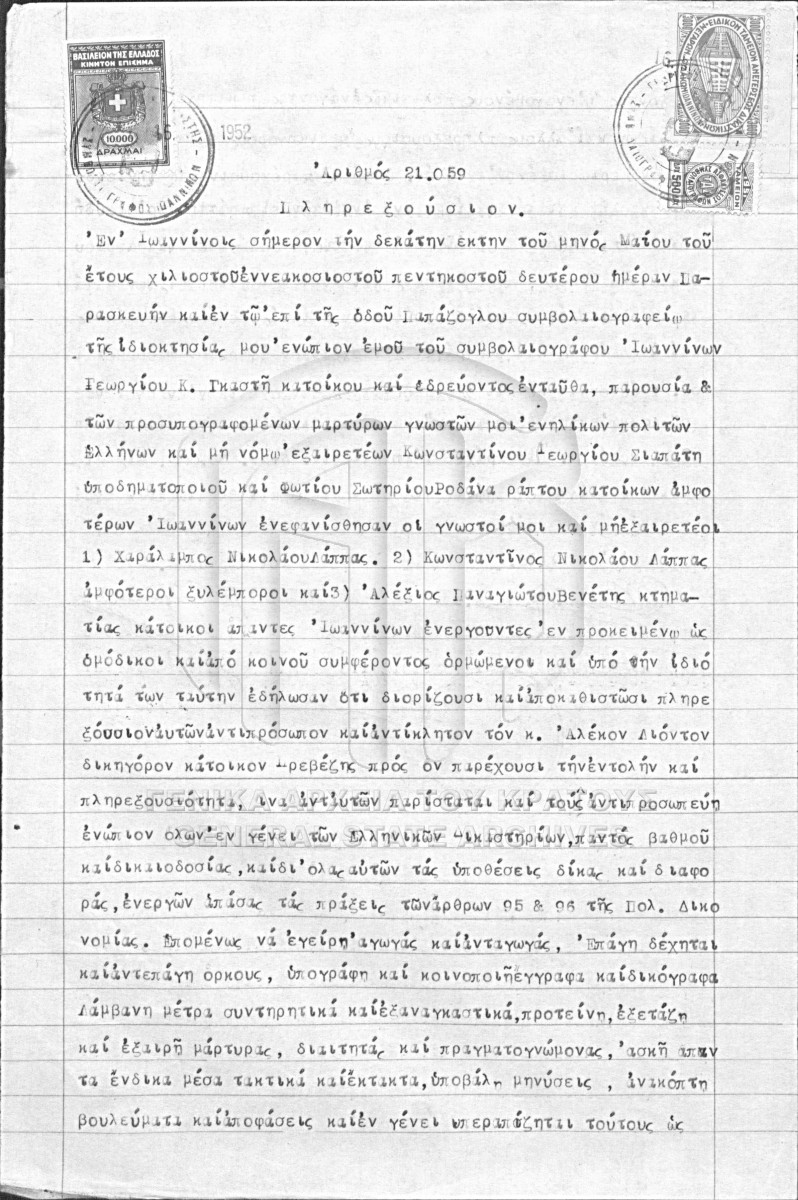 ΒΑΣΙΛΕΙΟΝ ΤΗΣ ΕΛΛΑΔΟΣ
ΚΙΝΗΤΟΝ ΕΠΙΣΗΜΑ
10000
ΔΡΑΧΜΑΙ
1952
Ἀριθμός 21.059
Πληρεξούσιον.
Ἐν Ἰωαννίνοις σήμερον τήν δεκάτην έκτην τοῦ μηνός Μαΐου τοῦ
ἔτους χιλιοστοῦέννεακοσιοστοῦ πεντηκοστοῦ δευτέρου ἡμέραν Πα-
ρασκευήν καίέν τῷ ἐπί τῆς ὁδοῦ Παπάζογλου συμβολαιογραφείῳ
τῆς ἰδιοκτησίας μου ἐνώπιον ἐμοῦ τοῦ συμβολαιογράφου Ἰωαννίνων
Γεωργίου Κ. Γκαστῆ κατοίκου καί ἑδρεύοντος ἐνταῦθα, παρουσία &
τῶν προσυπογραφομένων μαρτύρων γνωστῶν μοι ἐνηλίκων πολιτῶν
Ἑλλήνων καί μή νόμῳ ἐξαιρετέων Κωνσταντίνου Γεωργίου Σιαπάτη
ὑποδηματοποιοῦ καί Φωτίου ΣωτηρίουΡοδίνα ράπτου κατοίκων ἀμφο
τέρων Ἰωαννίνων ἐνεφανίσθησαν οι γνωστοί μοι καί μήἐξαιρετέοι
1) Χαράλαμπος ΝικολάουΛάππας. 2) Κωνσταντῖνος Νικολάου Λάππας
ἀμφότεροι ξυλέμποροι καί3) Ἀλέξιος ΠαναγιώτουΒενέτης κτημα-
τίας κάτοικοι άπαντες Ἰωαννίνων ἐνεργοῦντες ἐν προκειμένῳ ὡς
ὁμόδικοι καίἀπό κοινοῦ συμφέροντος ὁρμώμενοι καί ὑπό τήν ἰδιό
τητά των ταύτην ἐδήλωσαν ὅτι διορίζουσι καίἀποκαθιστῶσι πληρε
ξούσιοναὐτῶνἀντιπρόσωπον καίἀντίκλητον τόν κ. Ἀλέκον Λιόντον
δικηγόρον κάτοικον Πρεβέζης πρός ον παρέχουσι τήνἐντολήν καί
πληρεξουσιότητα, ινα ἀντ'αὐτῶν παρίσταται καί τούς ἀντιπροσωπεύη
ἐνώπιον ὅλων ἐν γένει τῶν Ἑλληνικῶν Δικαστηρίων,παντός βαθμοῦ
καίδικαιοδοσίας,καίδι'ολας αὐτῶν τάς ὑποθέσεις δίκας καί διαφο
ράς,ἐνεργῶν ἁπάσας τάς πράξεις τῶνἄρθρων 95 & 96 τῆς Πολ. Δικο
νομίας. Ἑπομένως νά ἐγείρη ἀγωγάς καίἀνταγωγάς, Ἐπάγη δέχηται
καίἀντεπάγη ορκους, ὑπογράφη καί κοινοποιῆἔγγραφα καίδικόγραφα
Λάμβανη μέτρα συντηρητικά καίἐξαναγκαστικά,προτείνη,ἐξετάζη
καί ἐξαιρῆ μάρτυρας, διαιτητάς καί πραγματογνώμονας, ἀσκῆ απαν
τα ἔνδικα μέσα τακτικά καίἔκτακτα,ὑποβάλη μηνύσεις , ἀνακόπτη
βουλεύματα καίἀποφάσεις καίἐν γένει υπερασπίζηται τούτους ὡς
ΓΕΝΙΚΑ ΑΡΧΕΙΑ ΤΟΥ ΚΡΑΤΟΥΣ
GENERAL STATE ARCHIVES